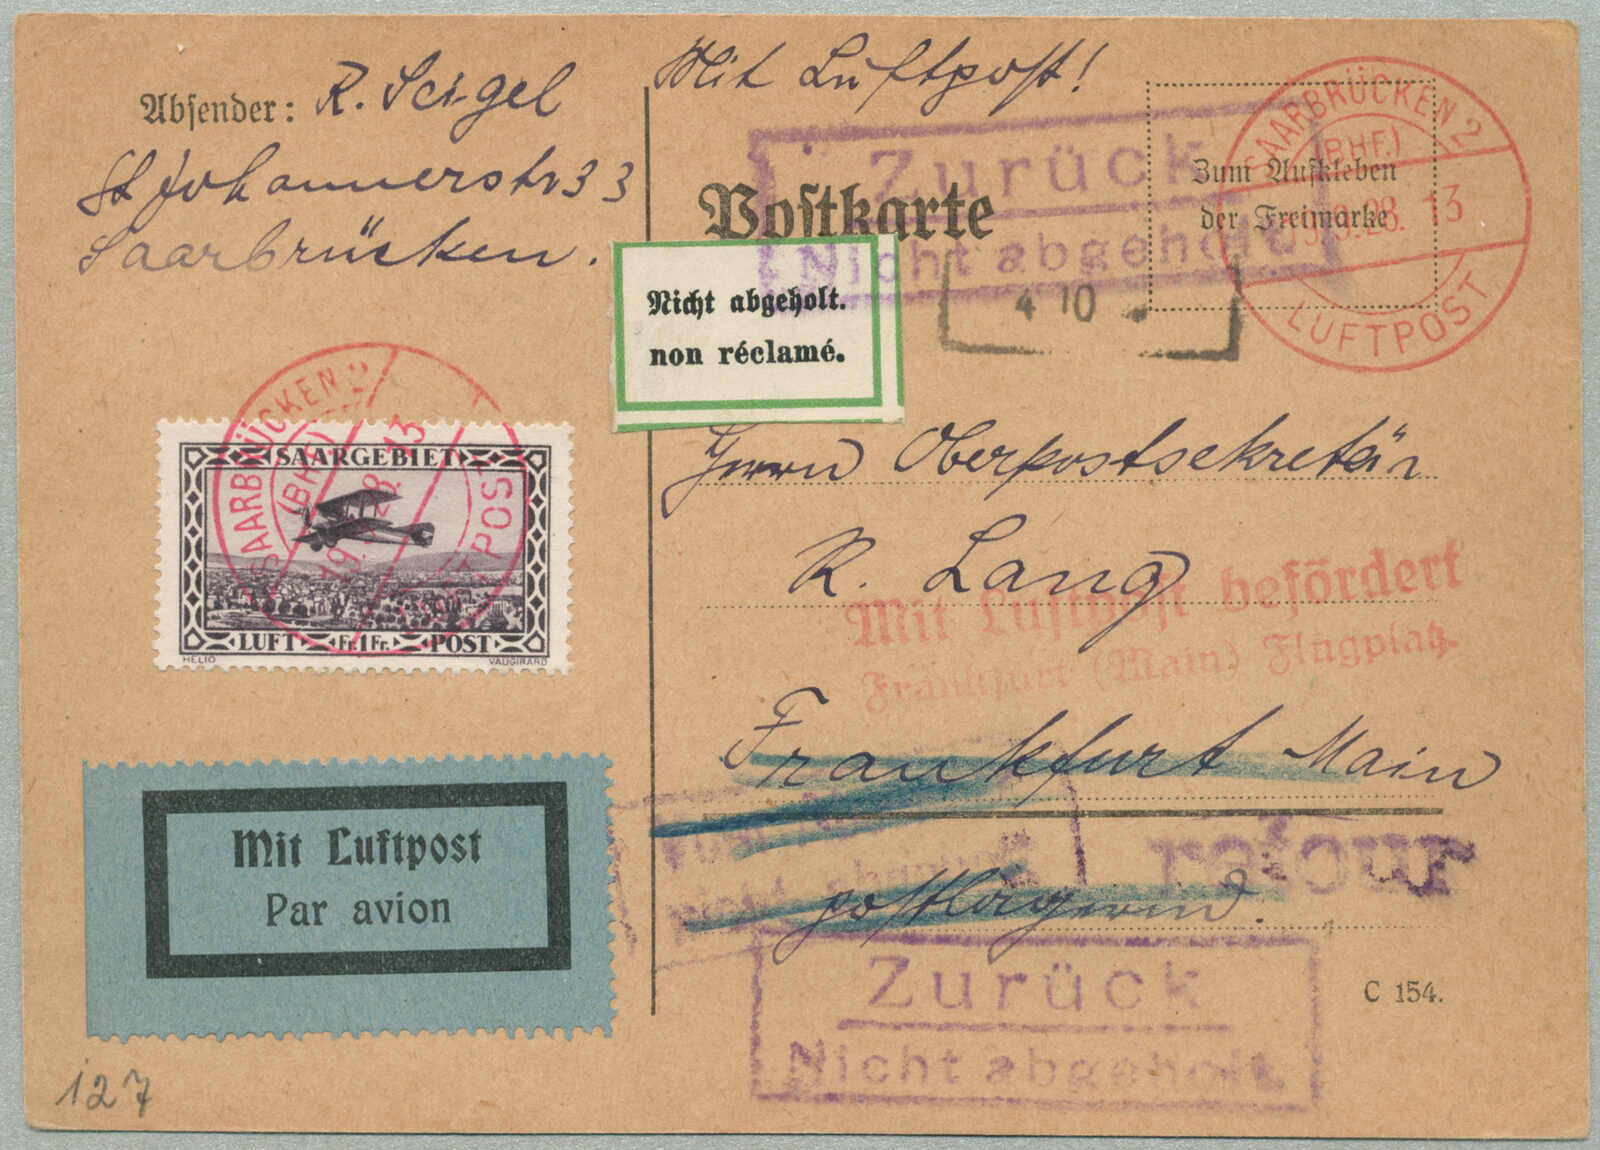 Absender: R. Seigel
St Johannerstr 33
Saarbrücken.
Mit Luftpost!
Postkarte
Zurück
Nicht abgeholt
Zum Aufkleben
der Freimarke
SAARBRÜCKEN 2
(BHF.)
9.28. 13
LUFTPOST
4 10
Nicht abgeholt.
non réclamé.
SAARBRÜCKEN 2
(BHF.)
19. 28. 13
LUFTPOST
SAARGEBIET
LUFT Fr. 1 Fr. POST
HELIO VAUGIRARD
Herrn Oberpostsekretär
R. Lang
Mit Luftpost befördert
Frankfurt (Main) Flugplatz
Frankfurt Main
retour
postlagernd.
Mit Luftpost
Par avion
Zurück
Nicht abgeholt
C 154.
127